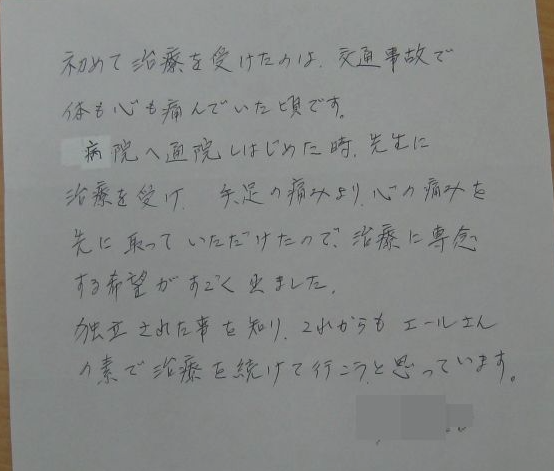 初めて治療を受けたのは、交通事故で
体も心も痛んでいた頃です。
病院へ通院しはじめた時、先生に
治療を受け、手、足の痛みより、心の痛みを
先に取っていただけたので、治療に専念
する希望がすごく出ました。
独立された事を知り、これからもエールさん
の素で治療を続けて行こうと思っています。